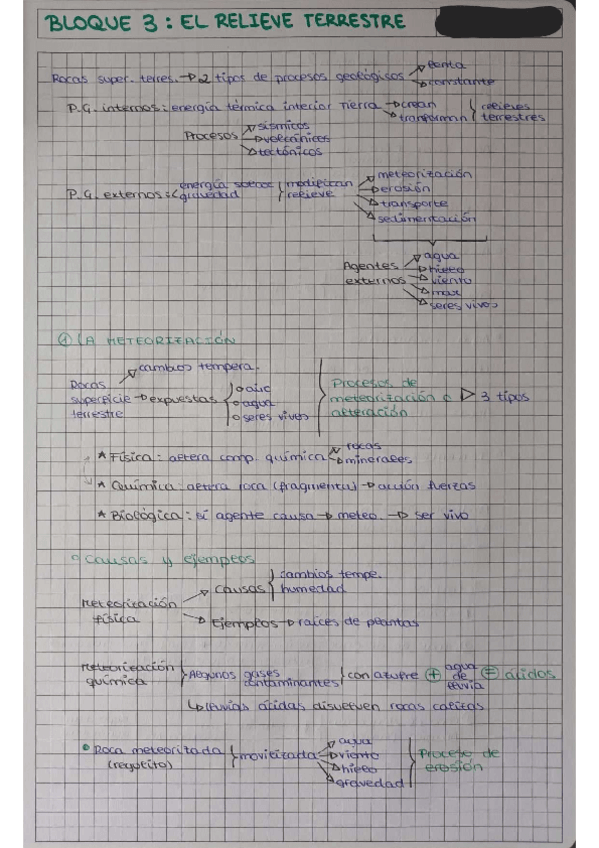 BLOQUE 3: EL RELIEVE TERRESTRE
Rocas super. terres. → 2 tipos de procesos geológicos → lenta
→ constante
P.G. internos: energía térmica interior tierra → crean } relieves
→ transforman } terrestres
Procesos → sísmicos
→ volcánicos
→ tectónicos
P.G. externos: energía solar } modifican → meteorización
gravedad } relieve → erosión
→ transporte
→ sedimentación
Agentes → agua
externos → hielo
→ viento
→ mar
→ seres vivos
① LA METEORIZACIÓN
Rocas → cambios tempera.
superficie → expuestas { o aire
terrestre o agua
o seres vivos
Procesos de
meteorización o → 3 tipos
alteración
* Física: altera comp. química → rocas
→ minerales
* Química: altera roca (fragmenta) → acción fuerzas
* Biológica: si agente causa → meteo. → ser vivo
° Causas y ejemplos
Meteorización → causas } cambios tempe.
física humedad
→ Ejemplos → raíces de plantas
Meteorización } Algunos gases } con azufre + agua = ácidos
química contaminantes de
lluvia
↳ lluvias ácidas disuelven rocas calizas
• Roca meteorizada } movilizada → agua
(regolito) → viento
→ hielo
→ gravedad
Proceso de
erosión